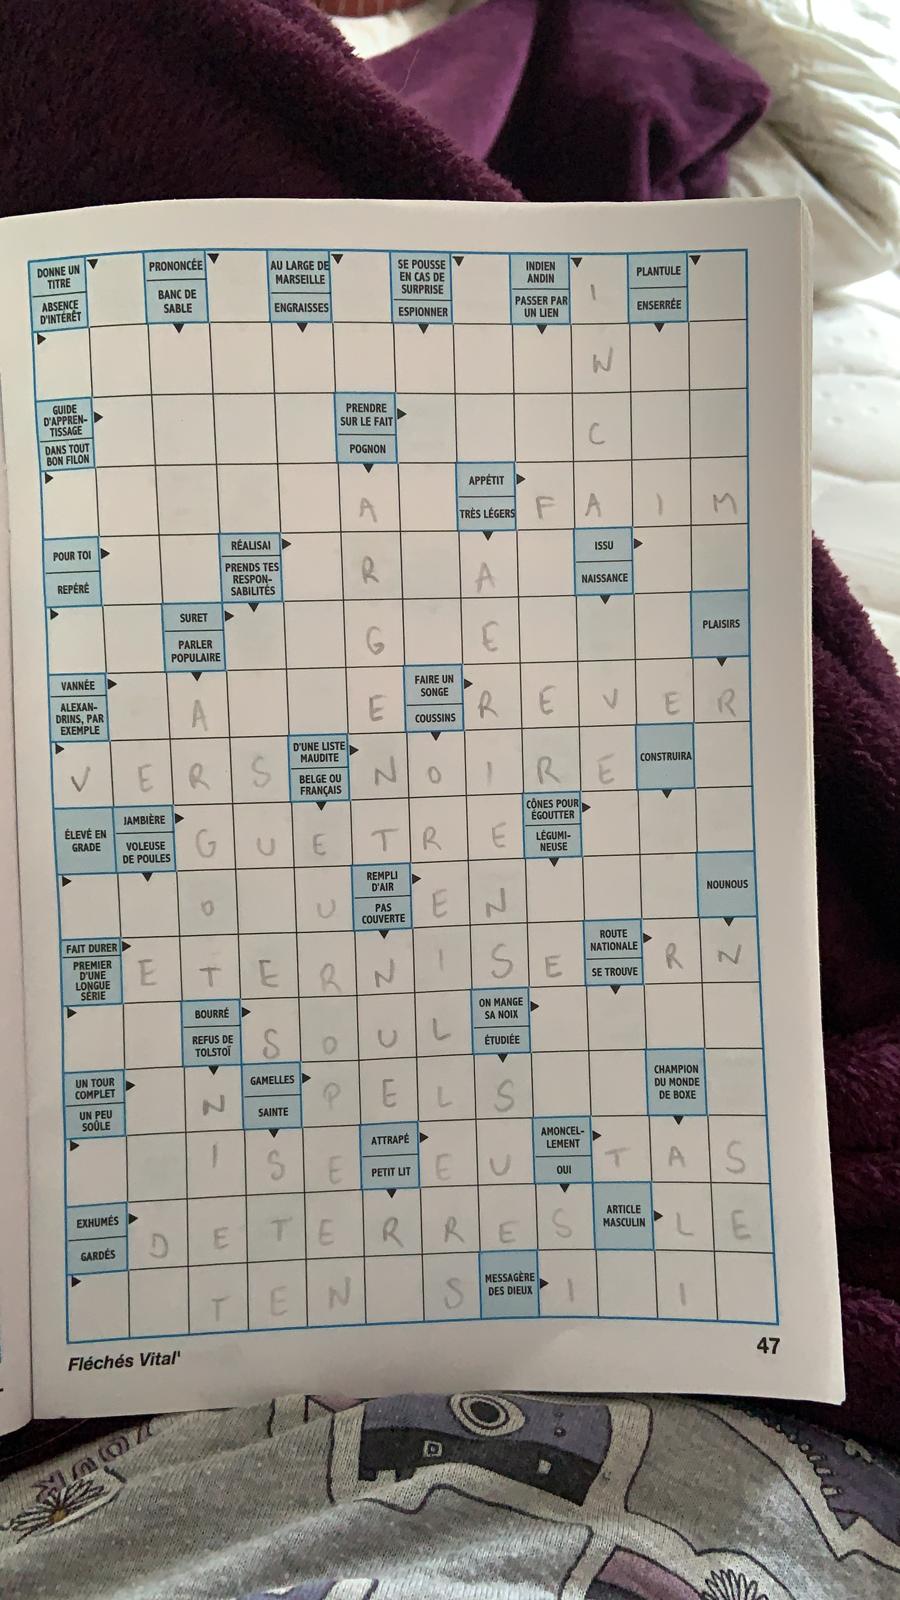 DONNE UN TITRE
ABSENCE D'INTÉRÊT
PRONONCÉE
BANC DE SABLE
AU LARGE DE MARSEILLE
ENGRAISSES
SE POUSSE EN CAS DE SURPRISE
ESPIONNER
INDIEN ANDIN
PASSER PAR UN LIEN
I
PLANTULE
ENSERRÉE
N
GUIDE D'APPRENTISSAGE
DANS TOUT BON FILON
PRENDRE SUR LE FAIT
POGNON
C
A
APPÉTIT
TRÈS LÉGERS
F A I M
POUR TOI
REPÉRÉ
RÉALISAI
PRENDS TES RESPONSABILITÉS
R
A
ISSU
NAISSANCE
SURET
PARLER POPULAIRE
G
E
PLAISIRS
VANNÉE
ALEXANDRINS, PAR EXEMPLE
A
E
FAIRE UN SONGE
COUSSINS
R E V E R
V E R S
D'UNE LISTE MAUDITE
BELGE OU FRANÇAIS
N O I R E
CONSTRUIRA
ÉLEVÉ EN GRADE
JAMBIÈRE
VOLEUSE DE POULES
G U E T R E
CÔNES POUR ÉGOUTTER
LÉGUMINEUSE
O
U
REMPLI D'AIR
PAS COUVERTE
E N
NOUNOUS
FAIT DURER
PREMIER D'UNE LONGUE SÉRIE
E T E R N I S E
ROUTE NATIONALE
SE TROUVE
R N
BOURRÉ
REFUS DE TOLSTOÏ
S O U L
ON MANGE SA NOIX
ÉTUDIÉE
UN TOUR COMPLET
UN PEU SOÛLE
N
GAMELLES
SAINTE
P E L S
CHAMPION DU MONDE DE BOXE
I S E
ATTRAPÉ
PETIT LIT
E U
AMONCELLEMENT
OUI
T A S
EXHUMÉS
GARDÉS
D E T E R R E S
ARTICLE MASCULIN
L E
T E N
S
MESSAGÈRE DES DIEUX
I
I
Fléchés Vital'
47